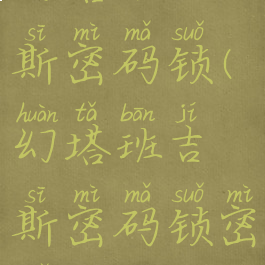 sī mì mǎ suǒ
斯密码锁(
huàn tǎ bān jí
幻塔班吉
sī mì mǎ suǒ mì
斯密码锁密